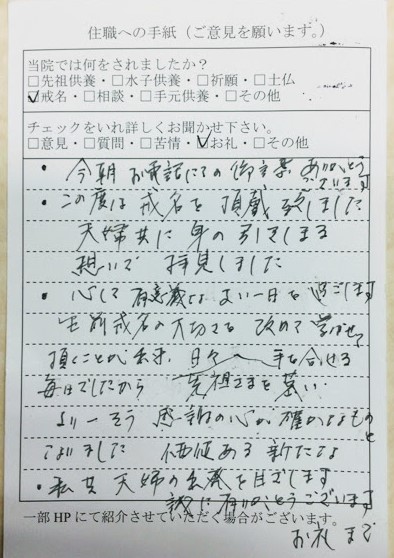 住職への手紙（ご意見を願います。）
当院では何をされましたか？
□先祖供養・□水子供養・□祈願・□土仏
☑戒名・□相談・□手元供養・□その他
チェックをいれ詳しくお聞かせ下さい。
□意見・□質問・□苦情・☑お礼・□その他
・今朝 お電話にての御言葉 ありがとう
ございます
・この度は 戒名を 頂戴致しました
夫婦共に 身の引きしまる
想いで 拝見しました
・心して 有意義な よい一日を 過ごします
生前戒名の大切さを 改めて 学ばせて
頂くことが出来 日々 手を合せる
毎日でしたから 先祖さまを慕い
より一そう 感謝の心が 確かなもの
と
なりました 価値ある 新たな
・私共 夫婦の を目ざします
誠に有りがとうございます
一部HPにて紹介させていただく場合がございます。
お礼まで